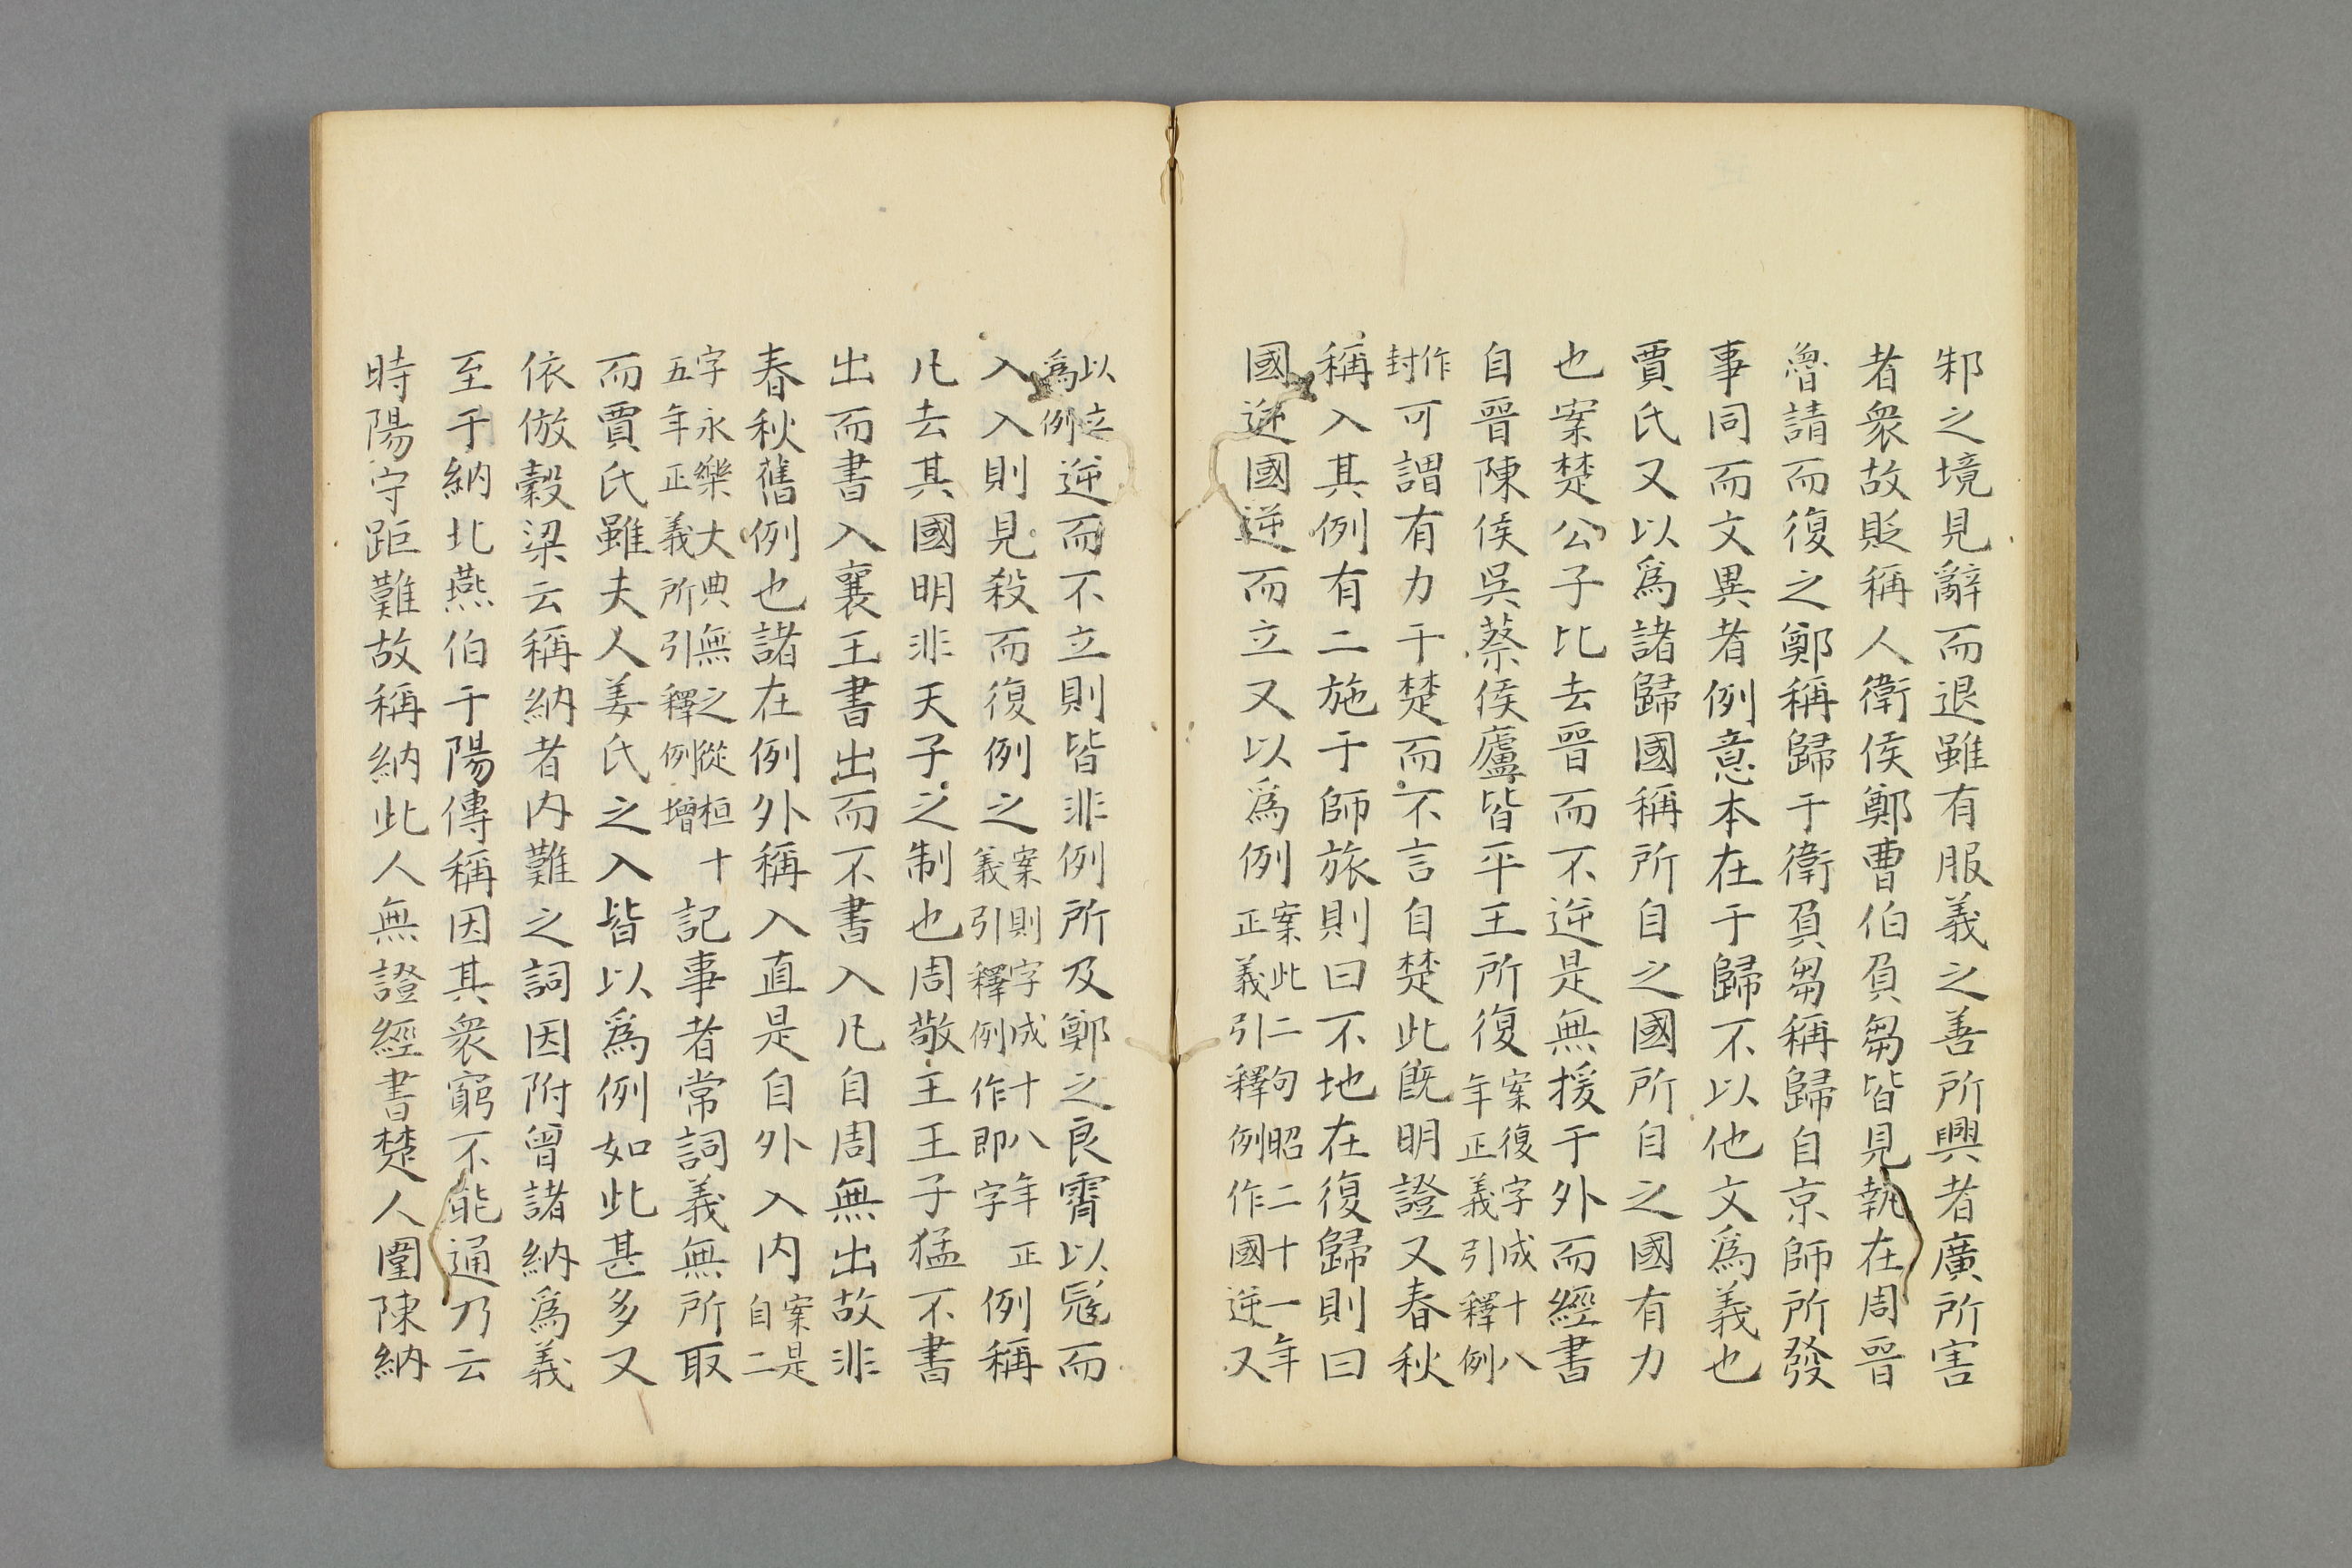 邾之境見辭而退雖有服義之善所興者廣所害
者衆故貶稱人衛侯鄭曹伯負芻皆見執在周晉
魯請而復之鄭稱歸于衛負芻稱歸自京師所發
事同而文異者例意本在于歸不以他文爲義也
賈氏又以爲諸歸國稱所自之國所自之國有力
也案楚公子比去晉而不逆是無援于外而經書
自晉陳侯吳蔡侯廬皆平王所復案復字成十八年正義引釋例
作封可謂有力于楚而不言自楚此既明證又春秋
稱入其例有二施于師旅則曰不地在復歸則曰
國逆國逆而立又以爲例案此二句昭二十一年正義引釋例作國逆又
以立爲例逆而不立則皆非例所及鄭之良霄以寇而
入入則見殺而復例之案則字成十八年正義引釋例作即字例稱
凡去其國明非天子之制也周敬王王子猛不書
出而書入襄王書出而不書入凡自周無出故非
春秋舊例也諸在例外稱入直是自外入内案是自二
字永樂大典無之從桓十五年正義所引釋例增記事者常詞義無所取
而賈氏雖夫人姜氏之入皆以爲例如此甚多又
依倣穀梁云稱納者内難之詞因附曾諸納爲義
至于納北燕伯于陽傳稱因其衆窮不能通乃云
時陽守距難故稱納此人無證經書楚人圍陳納